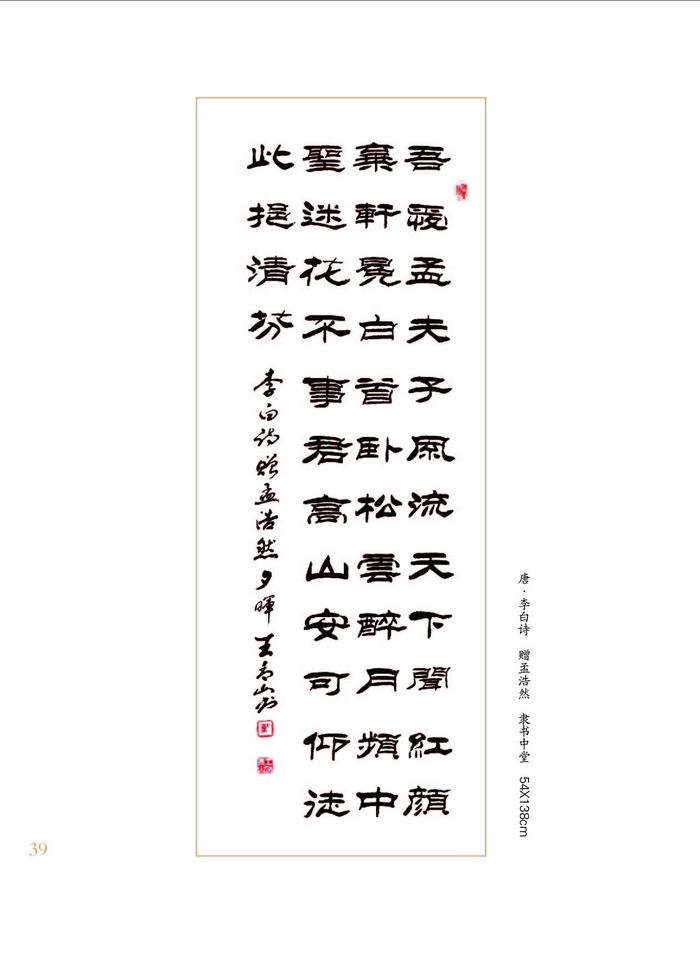 吾愛孟夫子風流天下聞紅顔
棄軒冕白首卧松雲醉月頻中
聖迷花不事君高山安可仰徒
此挹清芬
李白诗贈孟浩然夕暉王山
唐·李白诗 赠孟浩然 隶书中堂 54X138cm
39